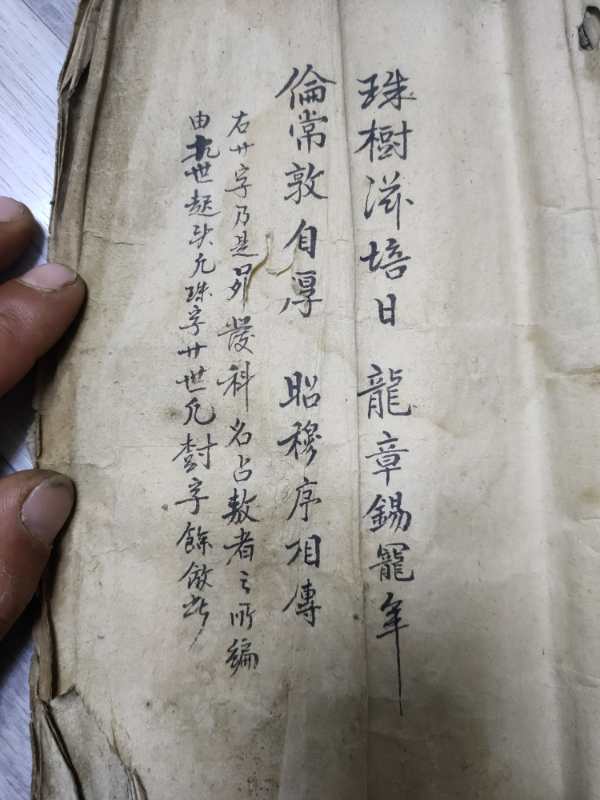 珠樹滋培日 龍章錫寵年
倫常敦自厚 昭穆序相傳
右廿字乃是昇發科名占敖者之所編
由十九世起头允珠字廿世允對字餘倣此